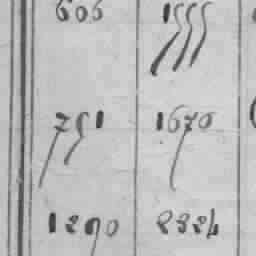 606 1555
751 1670
1290 2224